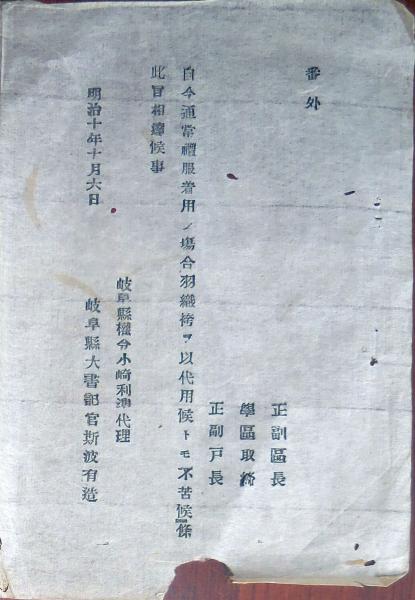 番外
正副區長
學區取締
正副戸長
自今通常禮服着用ノ塲合羽織袴ヲ以代用候トモ不苦候條
此旨相達候事
明治十年十月六日
岐阜縣權令小崎利準代理
岐阜縣大書記官斯波有造